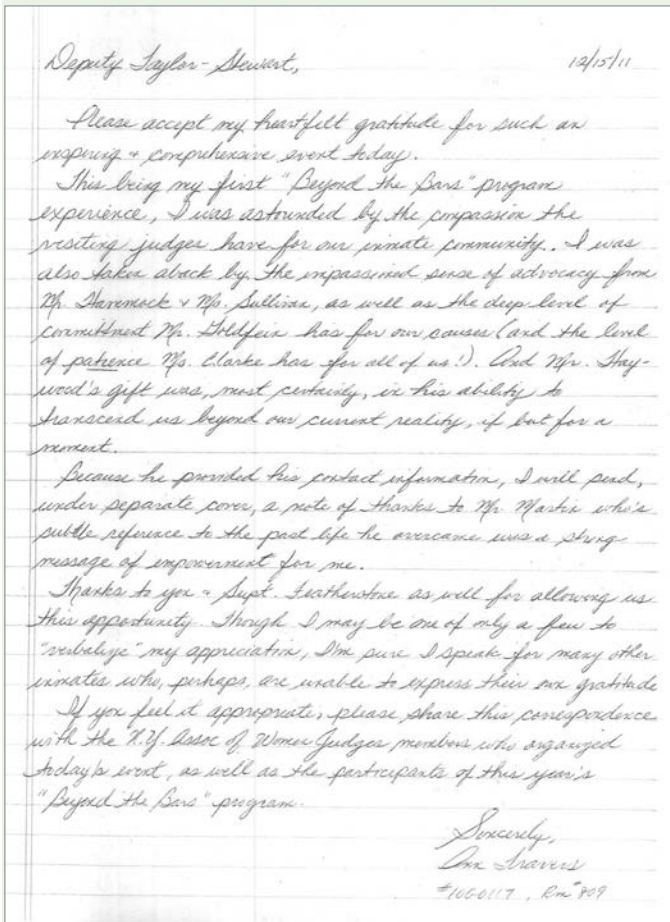 Deputy Taylor-Stewart, 12/15/11
Please accept my heartfelt gratitude for such an
inspiring & comprehensive event today.
This being my first "Beyond the Bars" program
experience, I was astounded by the compassion the
visiting judges have for our inmate community. I was
also taken aback by the impassioned sense of advocacy from
Mr. & Ms. Sullivan, as well as the deep level of
committment Mr. Goldfein has for our causes (and the level
of patience Ms. Clarke has for all of us!). And Mr. Hay-
wood's gift was, most certainly, in his ability to
transcend us beyond our current reality, if but for a
moment.
Because he provided his contact information, I will send,
under separate cover, a note of thanks to Mr. Martin who's
subtle reference to the past life he overcame was a strong
message of empowerment for me.
Thanks to you & Supt. Featherstone as well for allowing us
this opportunity. Though I may be one of only a few to
"verbalize" my appreciation, I'm sure I speak for many other
inmates who, perhaps, are unable to express their own gratitude
If you feel it appropriate, please share this correspondence
with the N.Y. Assoc of Women Judges members who organized
today's event, as well as the participants of this year's
"Beyond the Bars" program.
Sincerely,
Ann Travers
Rm# 809